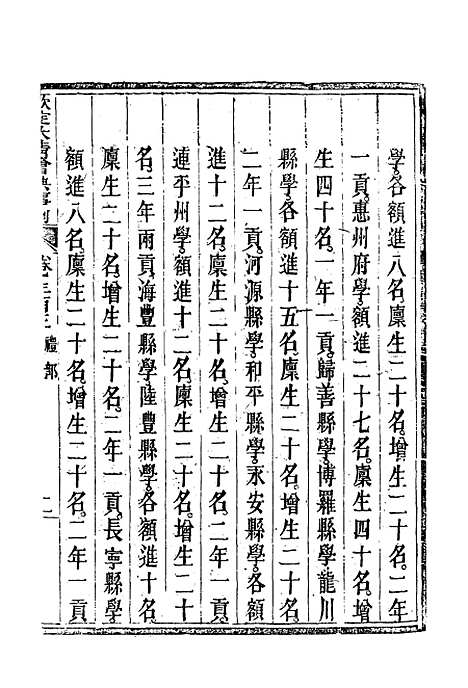 學各額進八名廩生二十名增生二十名二年
一貢惠州府學額進二十七名廩生四十名增
生四十名一年一貢歸善縣學博羅縣學龍川
縣學各額進十五名廩生二十名增生二十名
二年一貢河源縣學和平縣學永安縣學各額
進十二名廩生二十名增生二十名二年一貢
連平州學額進十二名廩生二十名增生二十
名三年兩貢海豐縣學陸豐縣學各額進十名
廩生二十名增生二十名二年一貢長寧縣學
額進八名廩生二十名增生二十名二年一貢
欽定大清會典事例 禮部